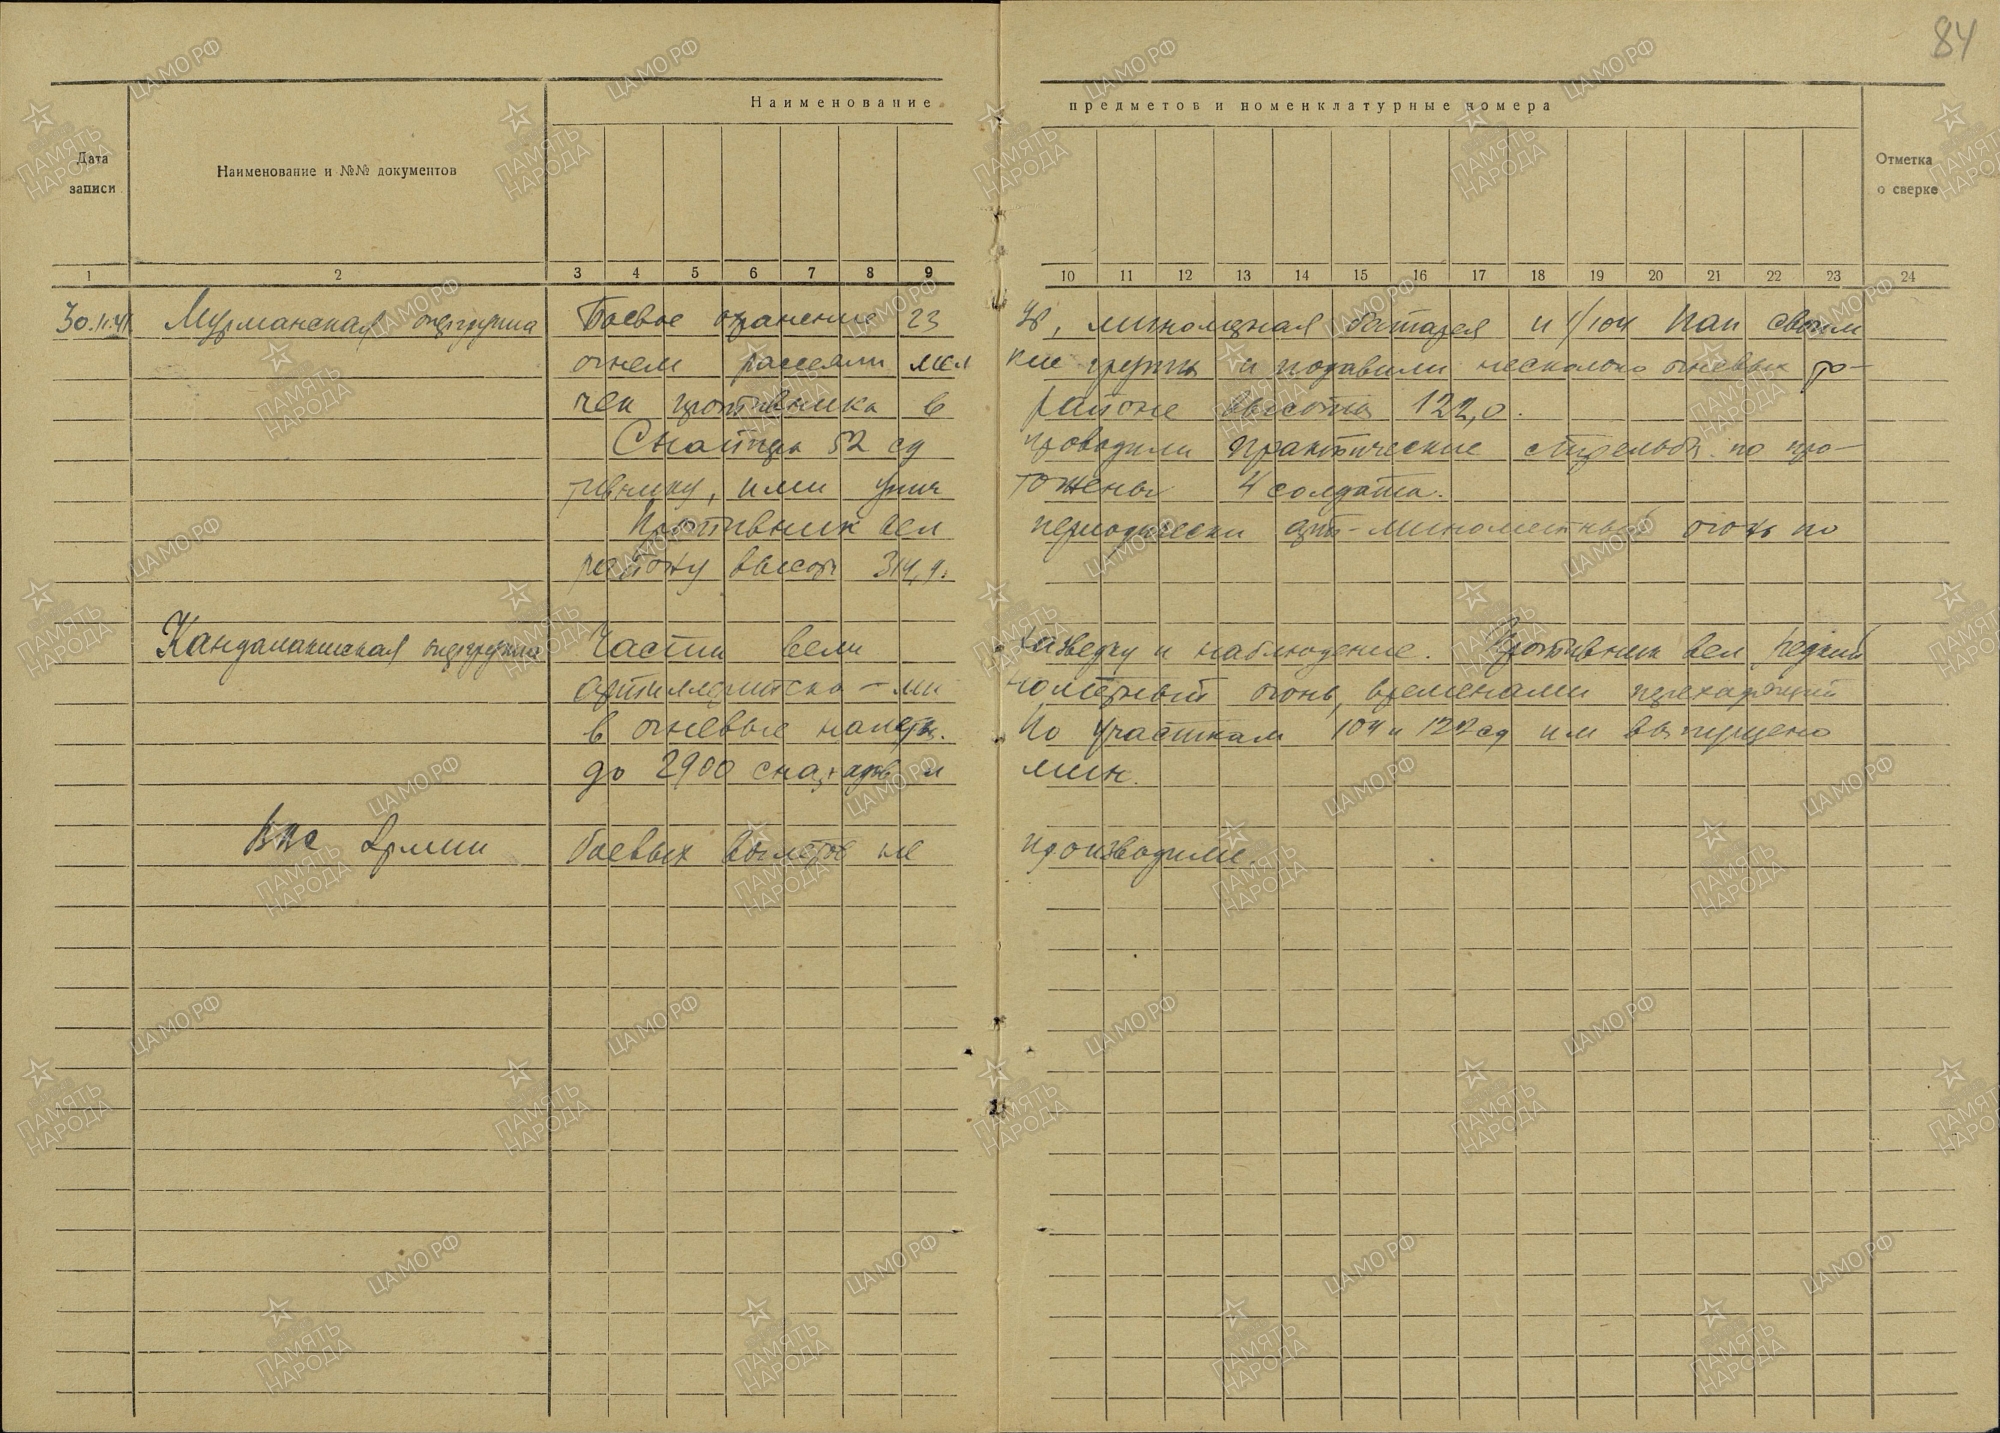 84
Наименование предметов и номенклатурные номера
Дата записи
Наименование и №№ документов
Отметка о сверке
1 2 3 4 5 6 7 8 9 10 11 12 13 14 15 16 17 18 19 20 21 22 23 24
30.11.41 Мурманская опергруппа Боевое охранение 23 УР, минометная батарея и 1/104 пап своим
огнем рассеяли мелкие группы и подавили несколько огневых то-
чек противника в районе высоты 122,0.
Снайперы 52 сд проводили практические стрельбы по про-
тивнику, ими уничтожены 4 солдата.
Противник вел периодически арт-минометный огонь по
району высоты 314,9.
Кандалакшская опергруппа Части вели разведку и наблюдение. Противник вел редкий
артиллерийско-минометный огонь, временами переходящий
в огневые налеты. По участкам 104 и 122 сд им выпущено
до 2900 снарядов и мин.
ВВС Армии боевых вылетов не производили.
ЦАМО.РФ
ПАМЯТЬ НАРОДА